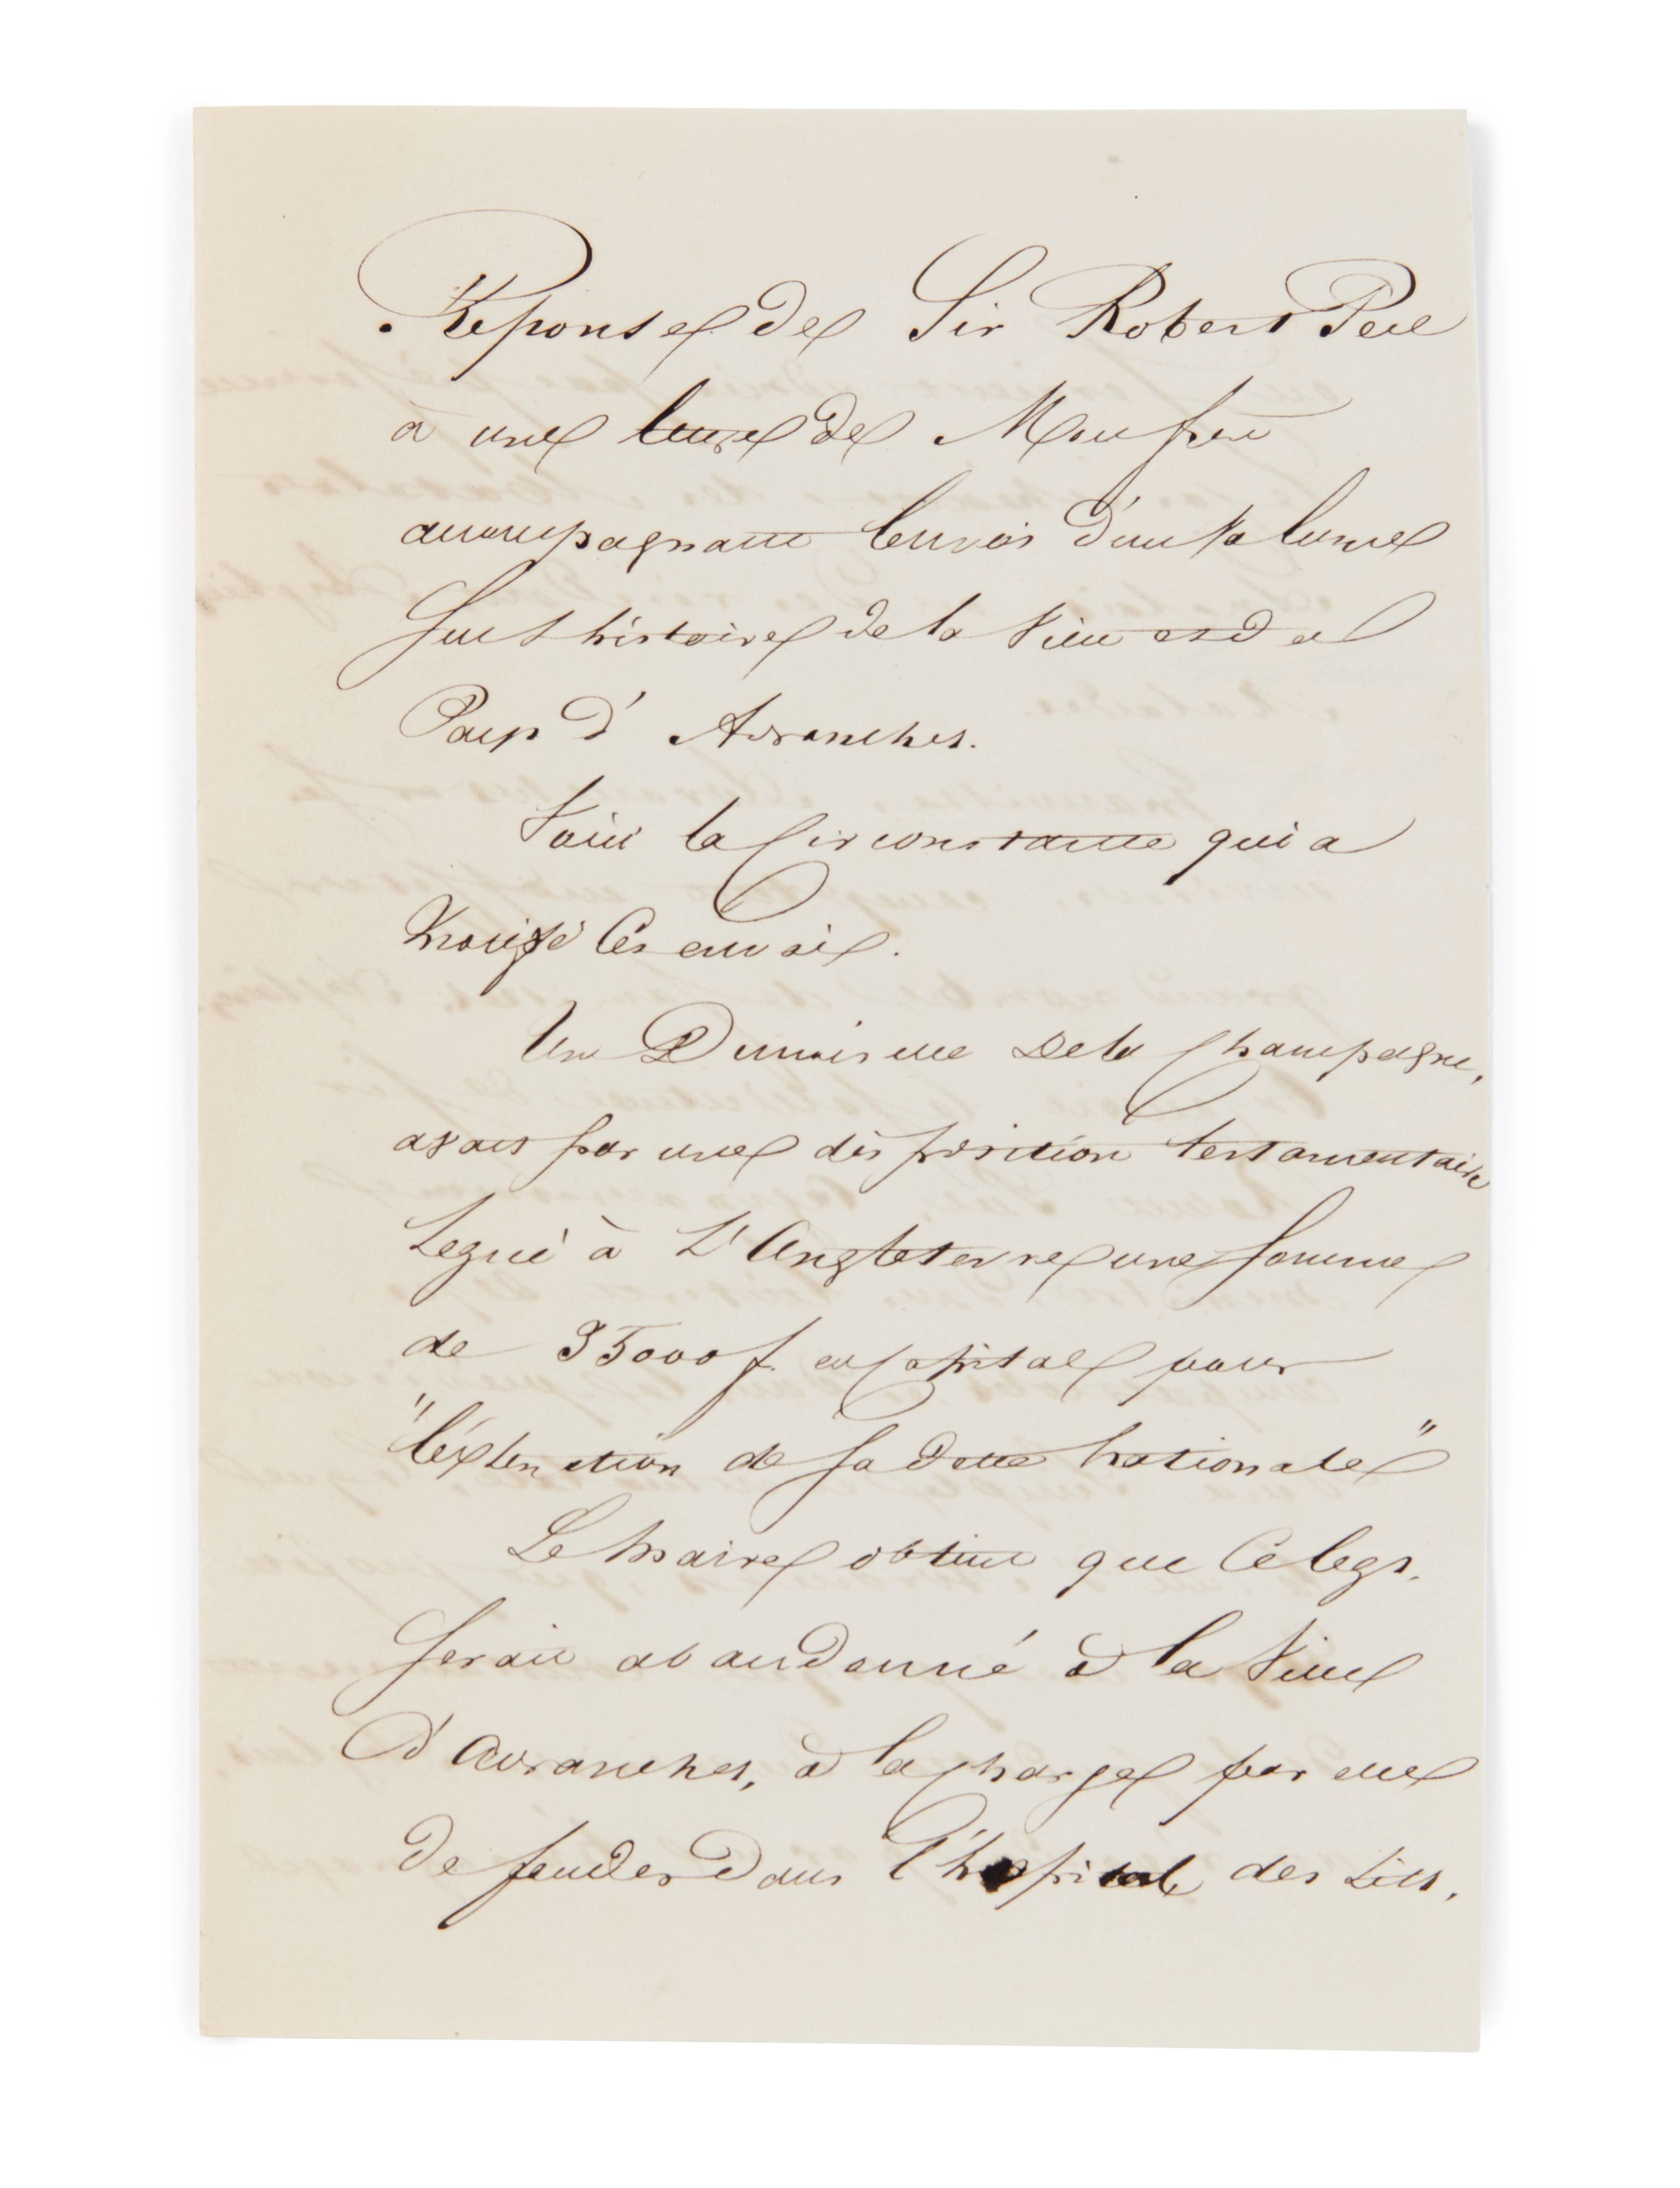 Reponse de Sir Robert Peel
à une lettre de Mon frere
accompagnant l'envoi d'un volume
sur l'histoire de la Ville et de
Pays d' Avranches.
Voici la Circonstance qui a
motivé Ces envois.
Un De la Champagne,
avait par une disposition testamentaire
Legué à L'Angleterre une somme
de 35000f en Capital pour
"l'éxtinction de sa dette nationale"
Le Maire obtint que Ce legs.
serait abandonné à la Ville
d'Avranches, à la charge par elle
de fonder dans l'hopital des Lits,